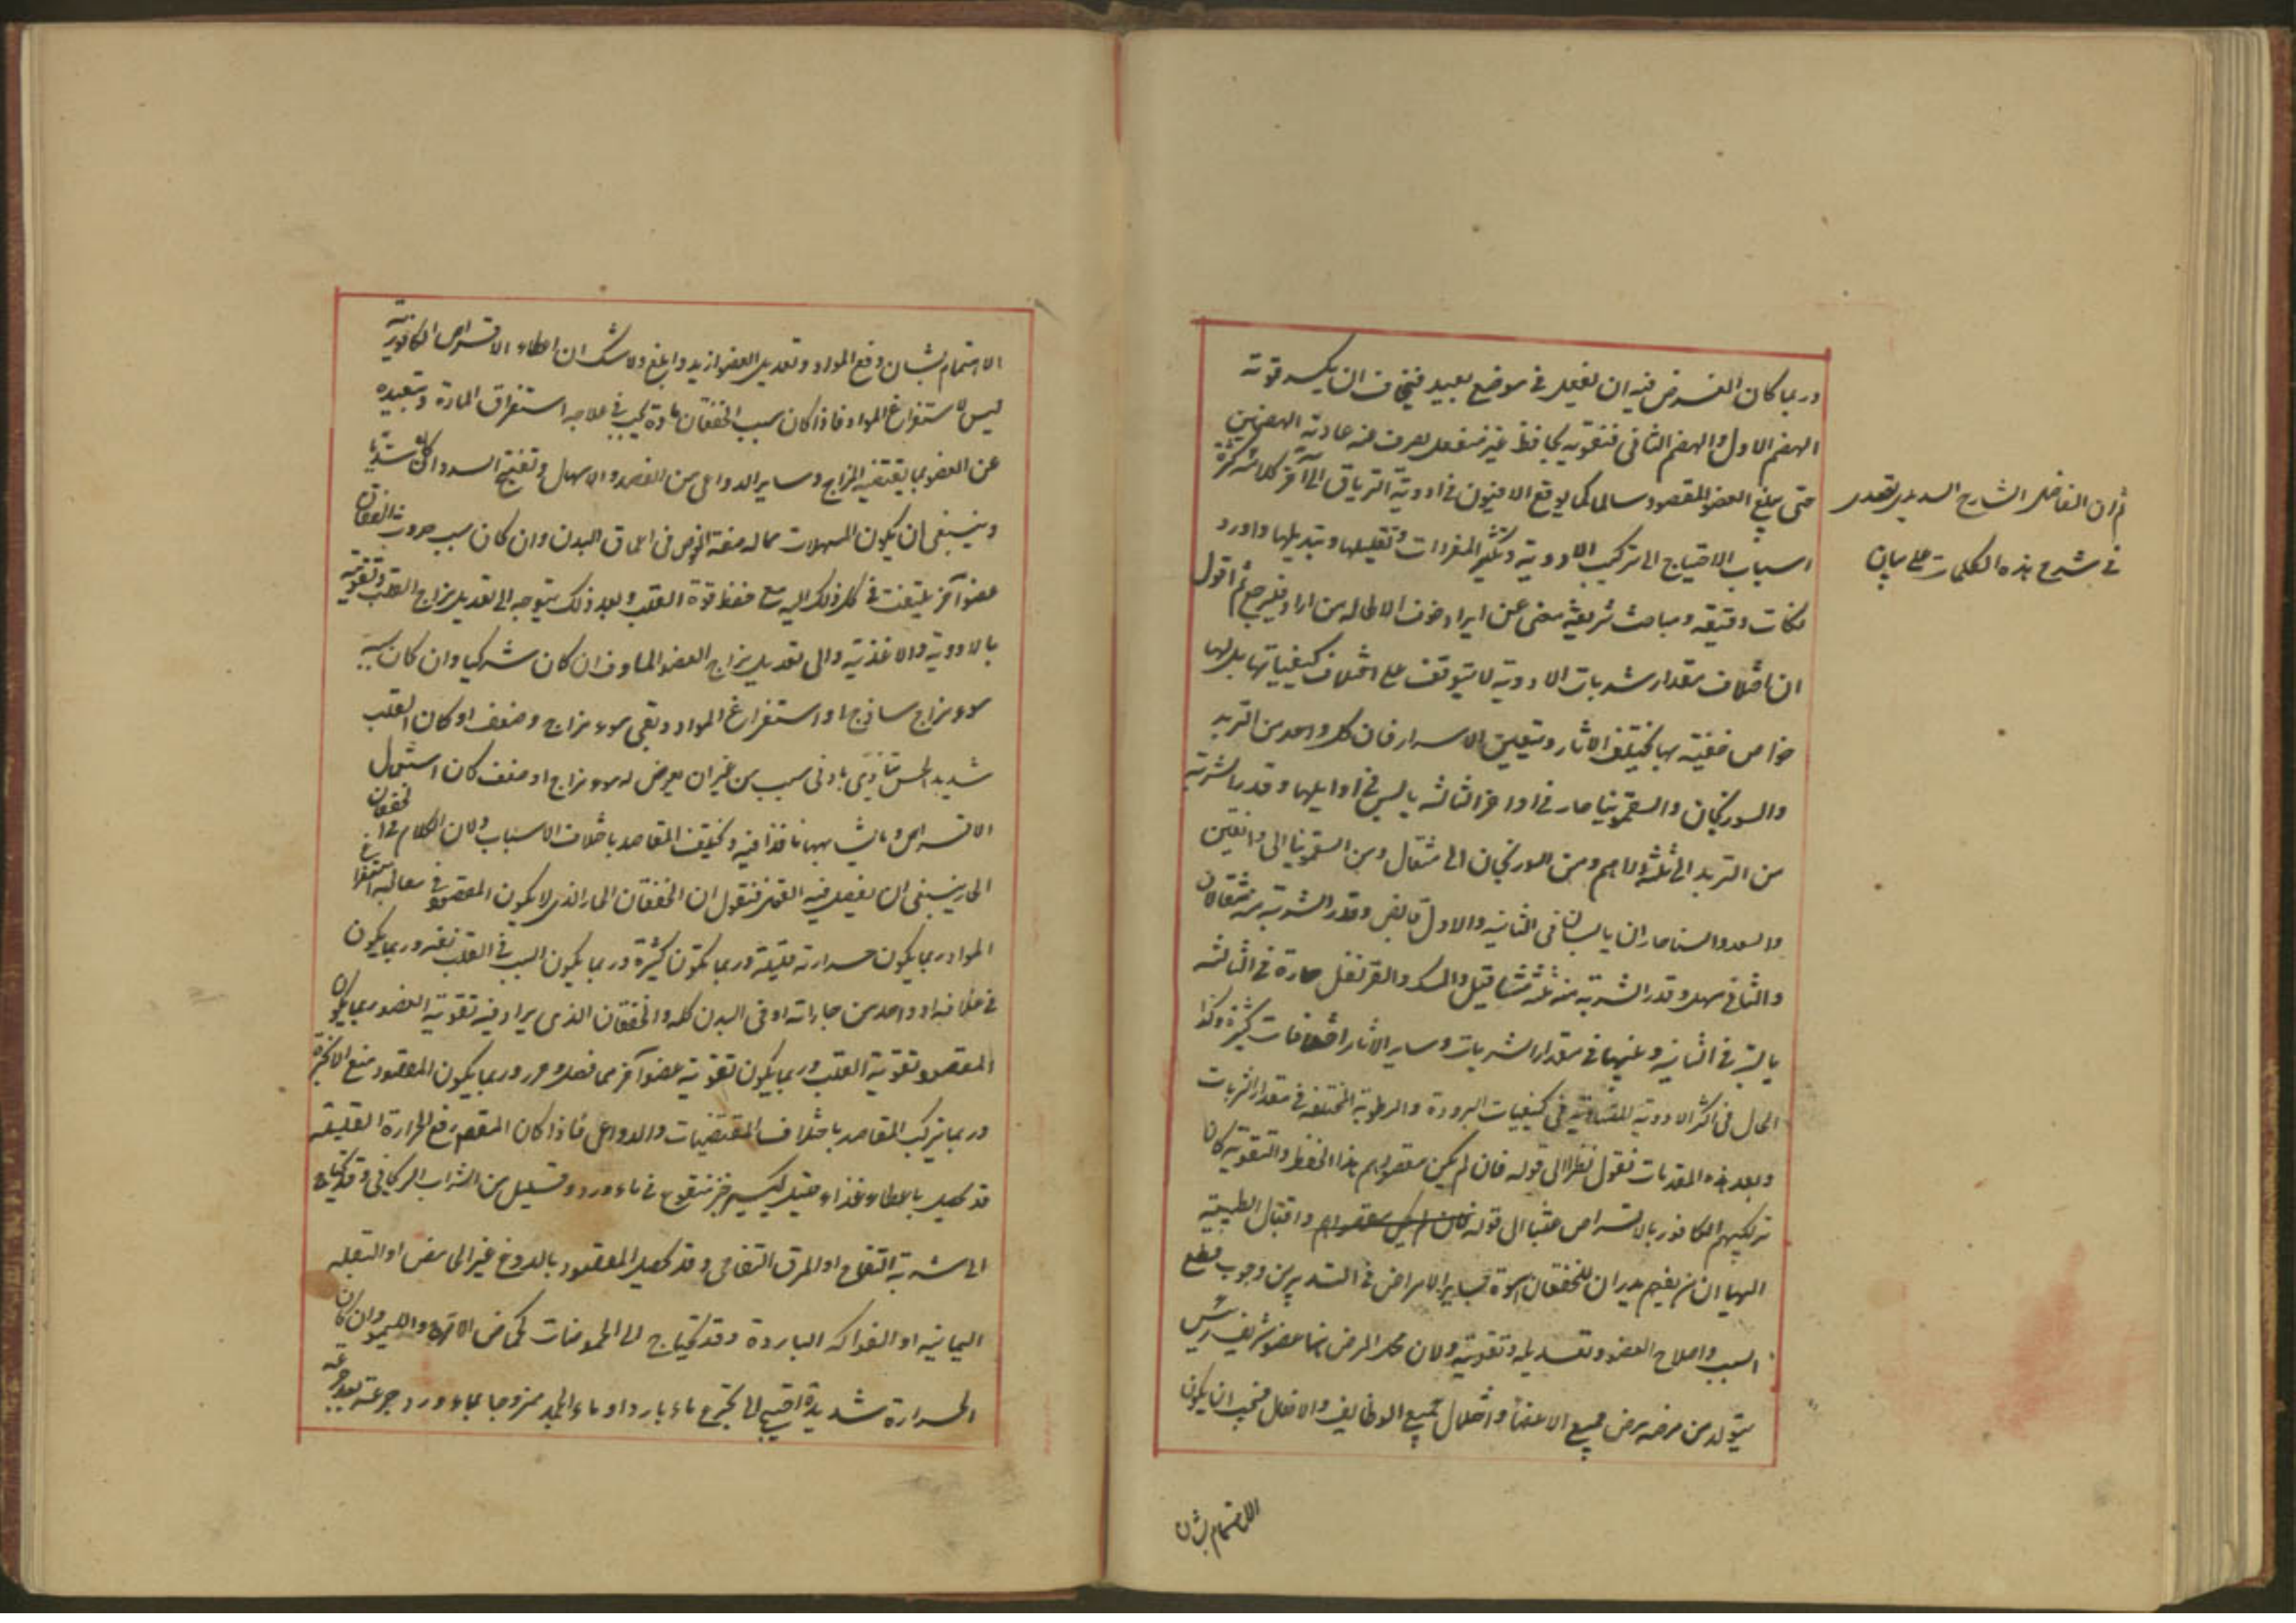 وربما كان الغرض فيه ان يفعل في موضع بعيد فيخاف ان يكسر قوته
الهضم الاول والهضم الثانى فتقويه بحافظ غير منفعل يصرف عنه عادية الهضمين
حتى يبلغ العضو المقصود سالما كما يوقع الافيون في ادوية الترياق الى آخر كلامه كثرة
ثم ان الفاضل الشارح السديدى تصدى
في شرح هذه الكلمات على بيان
اسباب الاحتياج الى تركيب الادوية وتكثير المفردات وتقليلها وتبديلها واورد
نكات دقيقه ومباحث شريفة مضى عن ايراد خوف الاطاله من اراد فليرجع ثم اقول
ان اختلاف مقدار شربات الادوية لا يتوقف على اختلاف كيفياتها بل لها
خواص خفية بها يختلف الآثار وتتعين الاسرار فان كل واحد من التربد
والسورنجان والسقمونيا حار في اواخر الثالثه يابس في اوايلها وقدر الشربة
من التربد الى ثلثة الدراهم ومن السورنجان الى مثقال ومن السقمونيا الى دانقين
والسعد والسنا حاران يابسان فى الثانيه والاول قابض وقدر الشربة منه مثقالان
والثانى مسهل وقدر الشربة منه ثلثة مثاقيل والمسك والقرنفل حارة في الثالثه
يابسة في الثانيه وبينهما في مقدار الشربات وساير الاثار اختلافات كثيرة وكذا
الحال فى اكثر الادوية المتشابهة فى كيفيات البرودة والرطوبة المختلفه في مقدار الشربات
وبعد هذه المقدمات نقول نظرا الى قوله فان لم يكن مقصودهم هذا الحفظ والتقوية كان
تركيبهم الكافور بالاقراص عبثا الى قوله فان لم يكن مقصودهم واقبال الطبيعة
اليها ان من يفهم يدر ان للخفقان اسوة بساير الامراض في التدبير من وجوب قطع
السبب واصلاح العضو وتعديله وتقويته ولان محل المرض هنا عضو شريف رئيس
يتولد من مرضه مرض جميع الاعضأ واختلال جميع الوظايف والافعال فيجب ان يكون
الاهتمام بشان
الاهتمام بشان دفع المواد وتعديل العضو ازيد وابلغ ولا شك ان اعطاء الاقراص الكافورية
ليس لاستفراغ المواد فاذا كان سبب الخفقان مادة يجب في علاجه استفراق المادة وتبعيده
عن العضو بما يقتضيه المزاج وساير الدواعى من الفصد والاسهال وتفتيح السدد ان كان شديا
وينبغى ان يكون المسهلات مما له صفة الغوص فى اعماق البدن وان كان سبب حدوث الخفقان
عضو آخر يلتفت في كل ذلك اليه مع حفظ قوة القلب وبعد ذلك يتوجه الى تعديل مزاج القلب وتقويته
بالادوية والاغذية والى تعديل مزاج العضو الماوف ان كان شركيا وان كان سببه
سوء مزاج ساذج او استفراغ المواد وبقى سوء مزاج وضعف او كان القلب
شديد الحس يتاذى بادنى سبب من غير ان يعرض له سوء مزاج او ضعف كان استعمال
الاقراص وما يشابهها نافذا فيه ويختلف المقاصد باختلاف الاسباب ولان الكلام في الخفقان
الحار ينبغى ان يفصل فيه القول فنقول ان الخفقان الحار الذى لا يكون المقصود في معالجه استفراغ
المواد ربما يكون حرارته قليلة وربما تكون كثيرة وربما يكون السبب في القلب نفسه وربما يكون
في غلافه او واحد من جاراته او فى البدن كله والخفقان الذى يراد فيه تقوية العضو ربما يكون
المقصود تقوية القلب وربما يكون تقوية عضو آخر مما فصل ومر وربما يكون المقصود منع الابخرة
وربما يتركب المقاصد باختلاف المقتضيات والدواعى فاذا كان المقصد رفع الحرارة القليلة
قد يحصل باعطاء غذاء قليل ككسير خبز منقوع في ماء ورد وقليل من الشراب الريحانى وقد يحتاج
الى شربة التفاح او المرق التفاحى وقد يحصل المقصود بالدوغ غير الحامض او البقله
اليمانيه او الفواكه الباردة وقد يحتاج الى الحموضات كحماض الاترج والليمو وان كان
الحرارة شديدة احتيج الى تجرع ماء بارد او ماء الجمد ممزوجا بماء ورد جرعة بعد جرعه